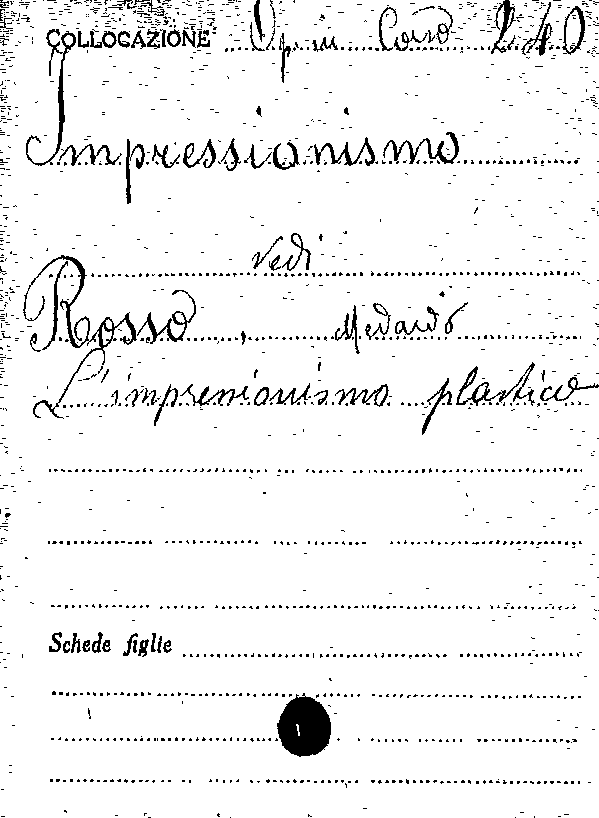 COLLOCAZIONE Op in Corso 240
Impressionismo
vedi
Rosso, Medardo
L'impressionismo plastico
Schede figlie